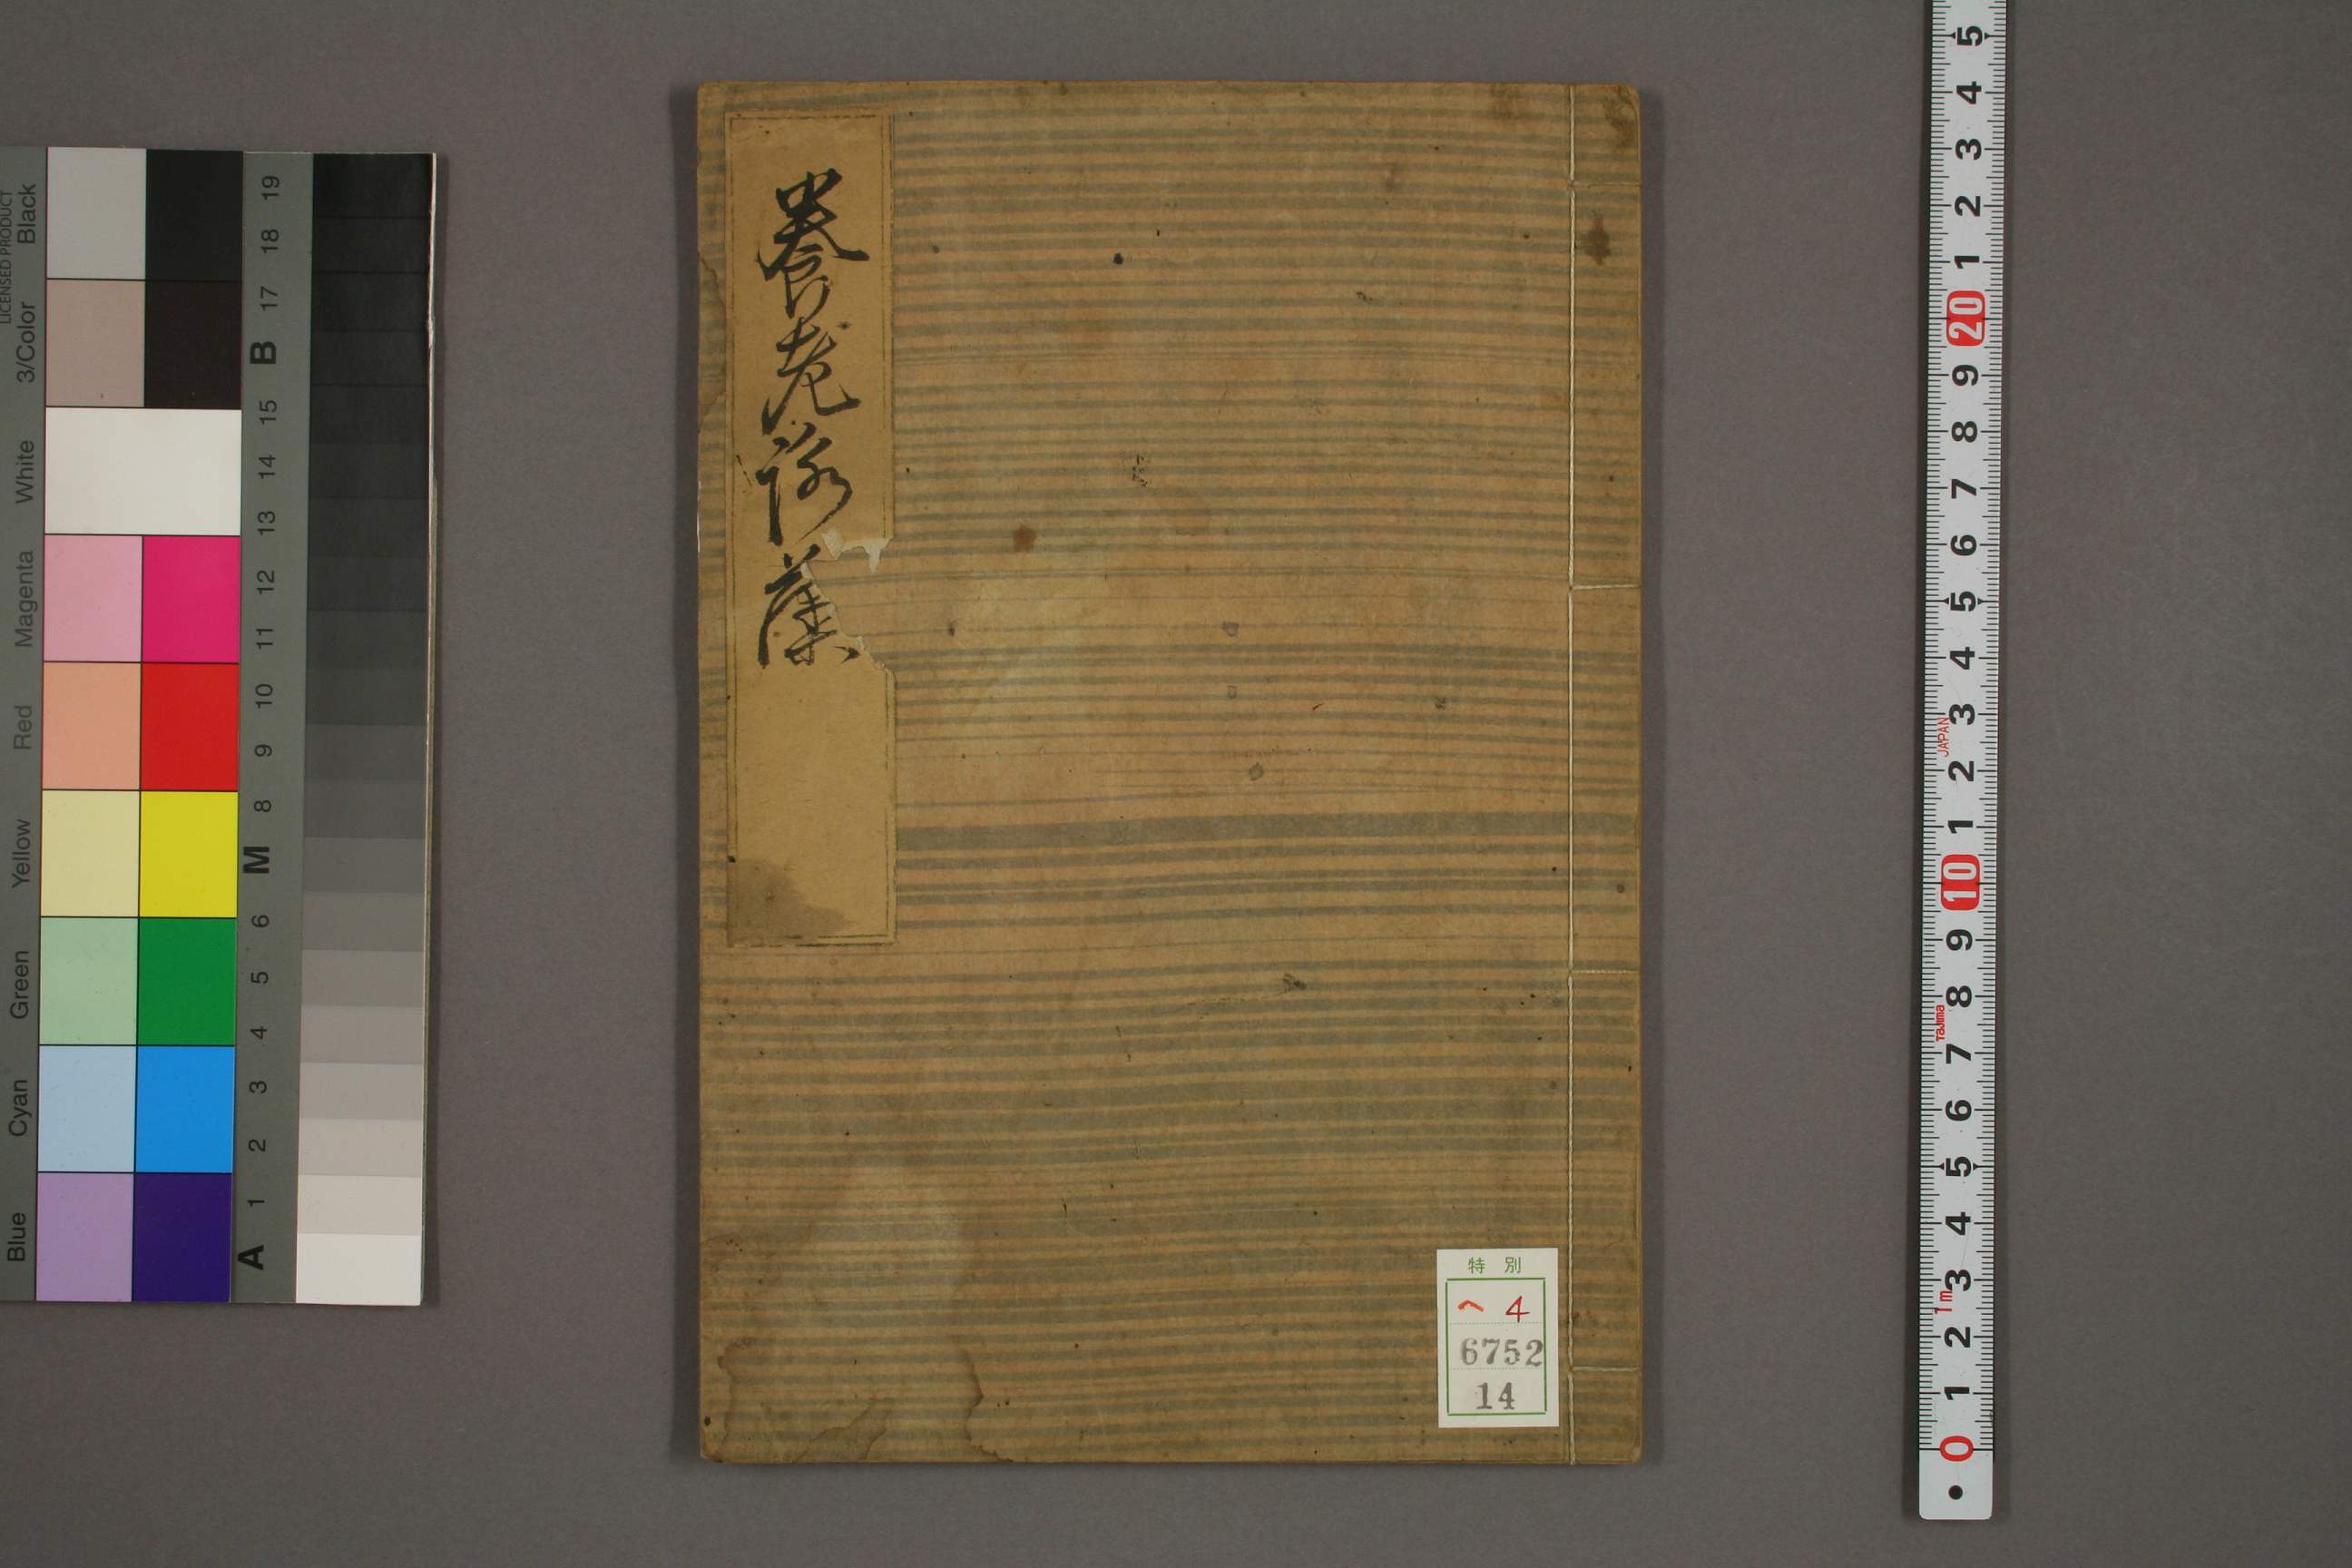 養老詠藻
特別
へ 4
6752
14
LICENSED PRODUCT
Black
3/Color
White
Magenta
Red
Yellow
Green
Cyan
Blue
19
18
17
B
15
14
13
12
11
10
9
8
M
6
5
4
3
2
1
A
5
4
3
2
1
20
9
8
7
6
5
4
3
JAPAN
2
1
10
9
8
Tajima
7
6
5
4
3
1m
2
1
0